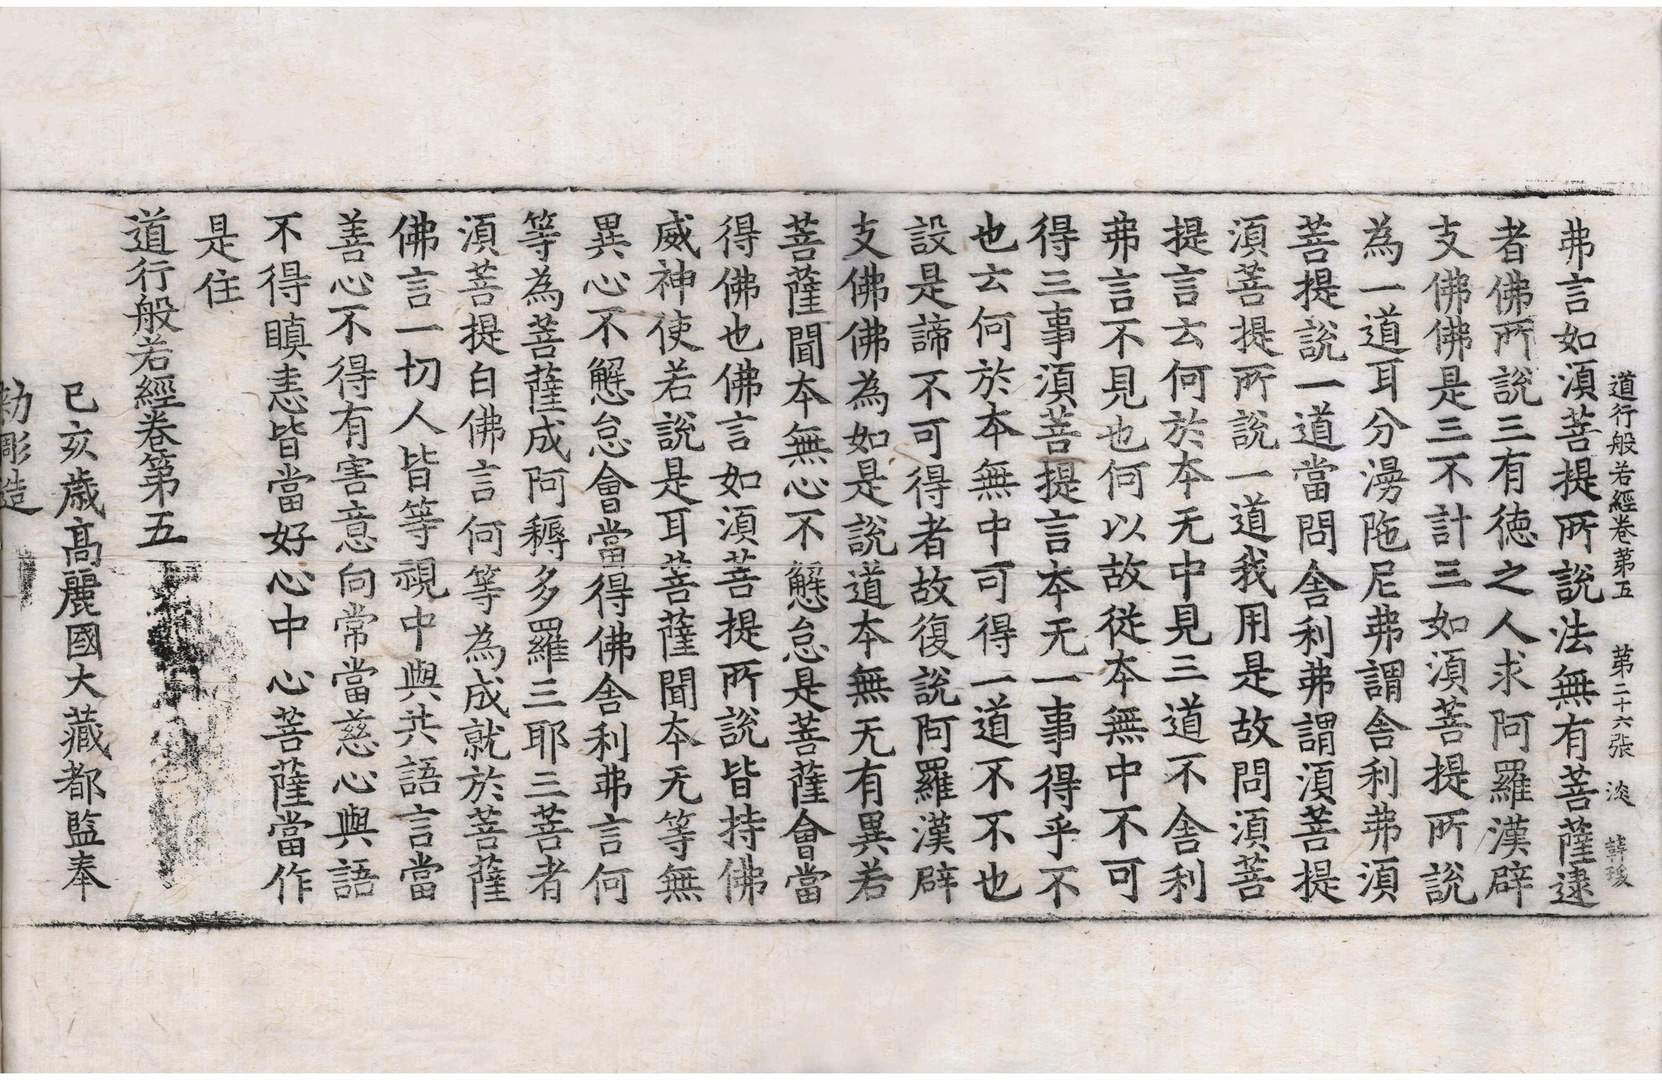 道行般若經卷第五 第二十六張 淡 韓稷
弗言如湏菩提所說法無有菩薩逮
者佛所說三有徳之人求阿羅漢辟
支佛佛是三不計三如湏菩提所說
為一道耳分漫陁尼弗謂舎利弗湏
菩提說一道當問舎利弗謂湏菩提
湏菩提所說一道我用是故問湏菩
提言云何於本无中見三道不舎利
弗言不見也何以故從本無中不可
得三事湏菩提言本无一事得乎不
也云何於本無中可得一道不不也
設是諦不可得者故復說阿羅漢辟
支佛佛為如是說道本無无有異若
菩薩聞本無心不懈怠是菩薩會當
得佛也佛言如湏菩提所說皆持佛
威神使若說是耳菩薩聞本无等無
異心不懈怠會當得佛舎利弗言何
等為菩薩成阿耨多羅三耶三菩者
湏菩提白佛言何等為成就於菩薩
佛言一切人皆等視中與共語言當
善心不得有害意向常當慈心與語
不得瞋恚皆當好心中心菩薩當作
是住
道行般若經卷第五
己亥歲高麗國大藏都監奉
勑彫造